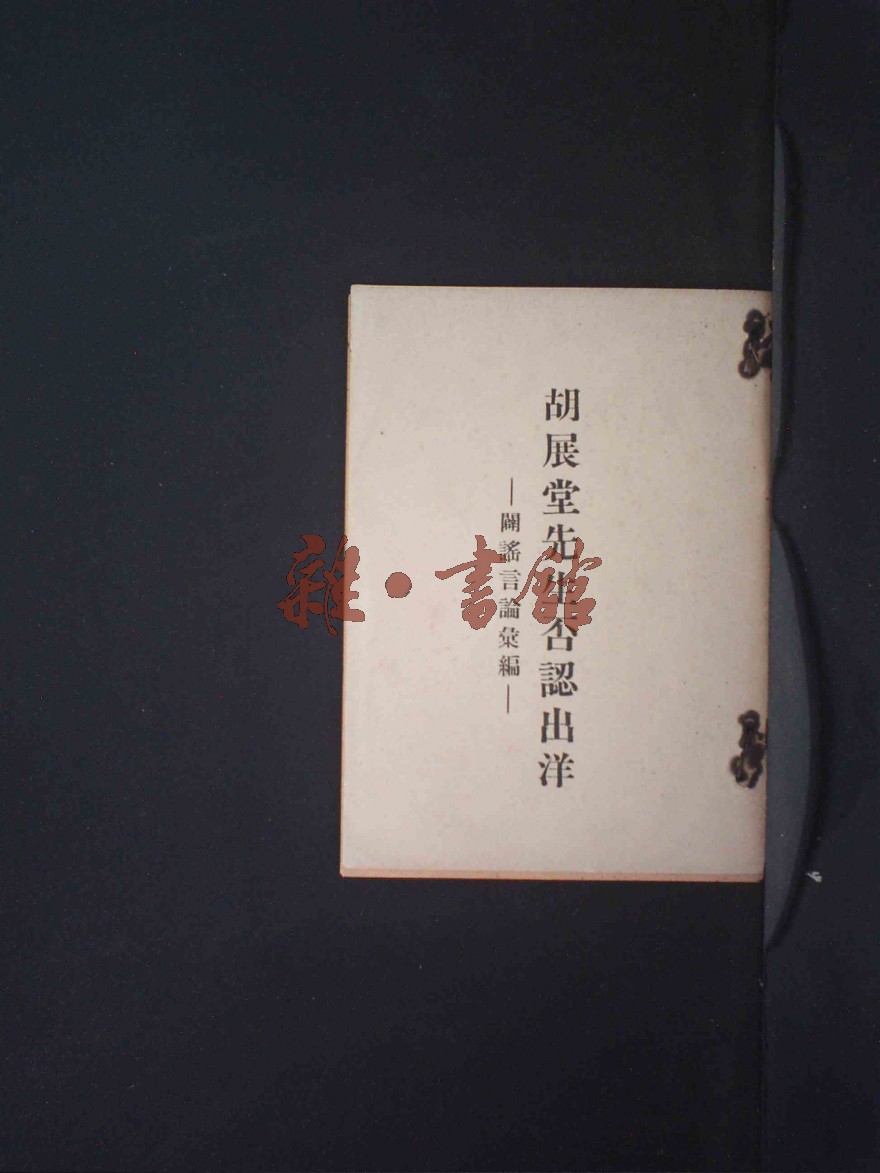 胡展堂先生否認出洋
—闢謠言論彙編—
雜·書館